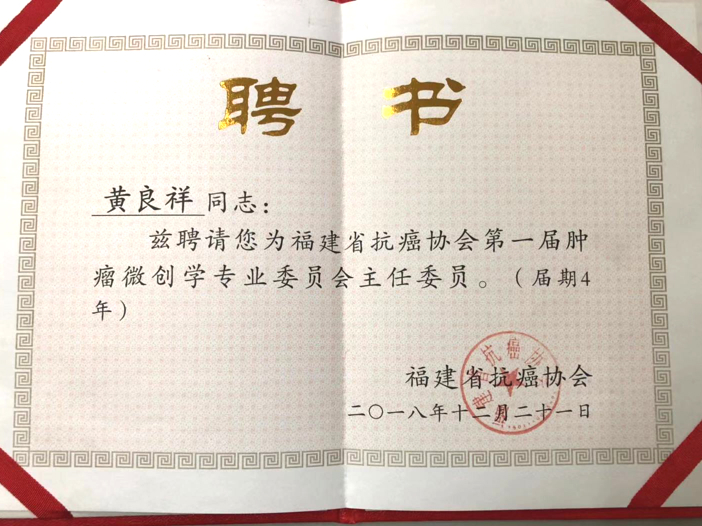 聘书
黄良祥同志：
兹聘请您为福建省抗癌协会第一届肿
瘤微创学专业委员会主任委员。（届期4
年）
福建省抗癌协会
二〇一八年十二月二十一日